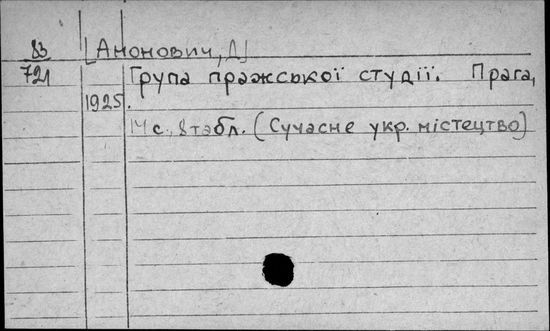 83 [Анонович, Д]
721 Група пражської студії. Прага,
1925.
14 с., 8 табл. (Сучасне укр. містецтво)